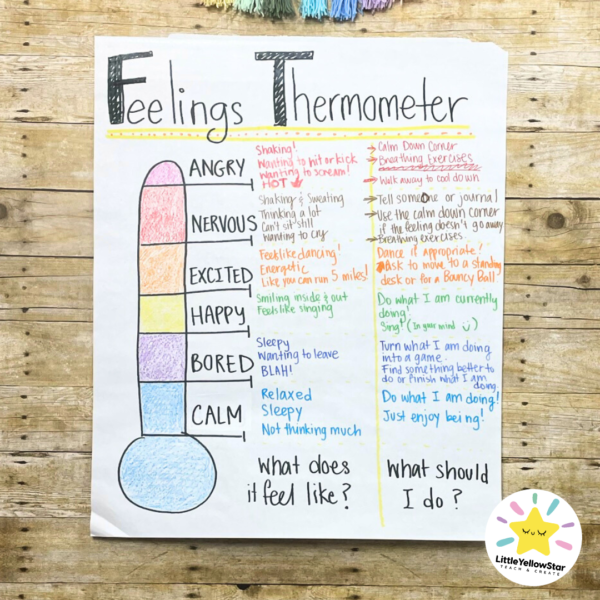 Feelings Thermometer
ANGRY
Shaking!
Wanting to hit or kick
Wanting to scream!
HOT
→ Calm Down Corner
→ Breathing Exercises
→ Walk away to cool down
NERVOUS
Shaking & Sweating
Thinking a lot
Can't sit still
Wanting to cry
→ Tell someone or journal
→ Use the calm down corner
if the feeling doesn't go away
→ Breathing exercises
EXCITED
Feel like dancing!
Energetic
Like you can run 5 miles!
Dance if appropriate!
Ask to move to a standing
desk or for a Bouncy Ball
HAPPY
Smiling inside & out
Feels like singing
Do what I am currently
doing!
Sing! (In your mind ☺)
BORED
Sleepy
Wanting to leave
BLAH!
Turn what I am doing
into a game.
Find something better to
do or finish what I am
doing
CALM
Relaxed
Sleepy
Not thinking much
Do what I am doing!
Just enjoy being!
What does
it feel like?
What should
I do?
LittleYellowStar
TEACH & CREATE